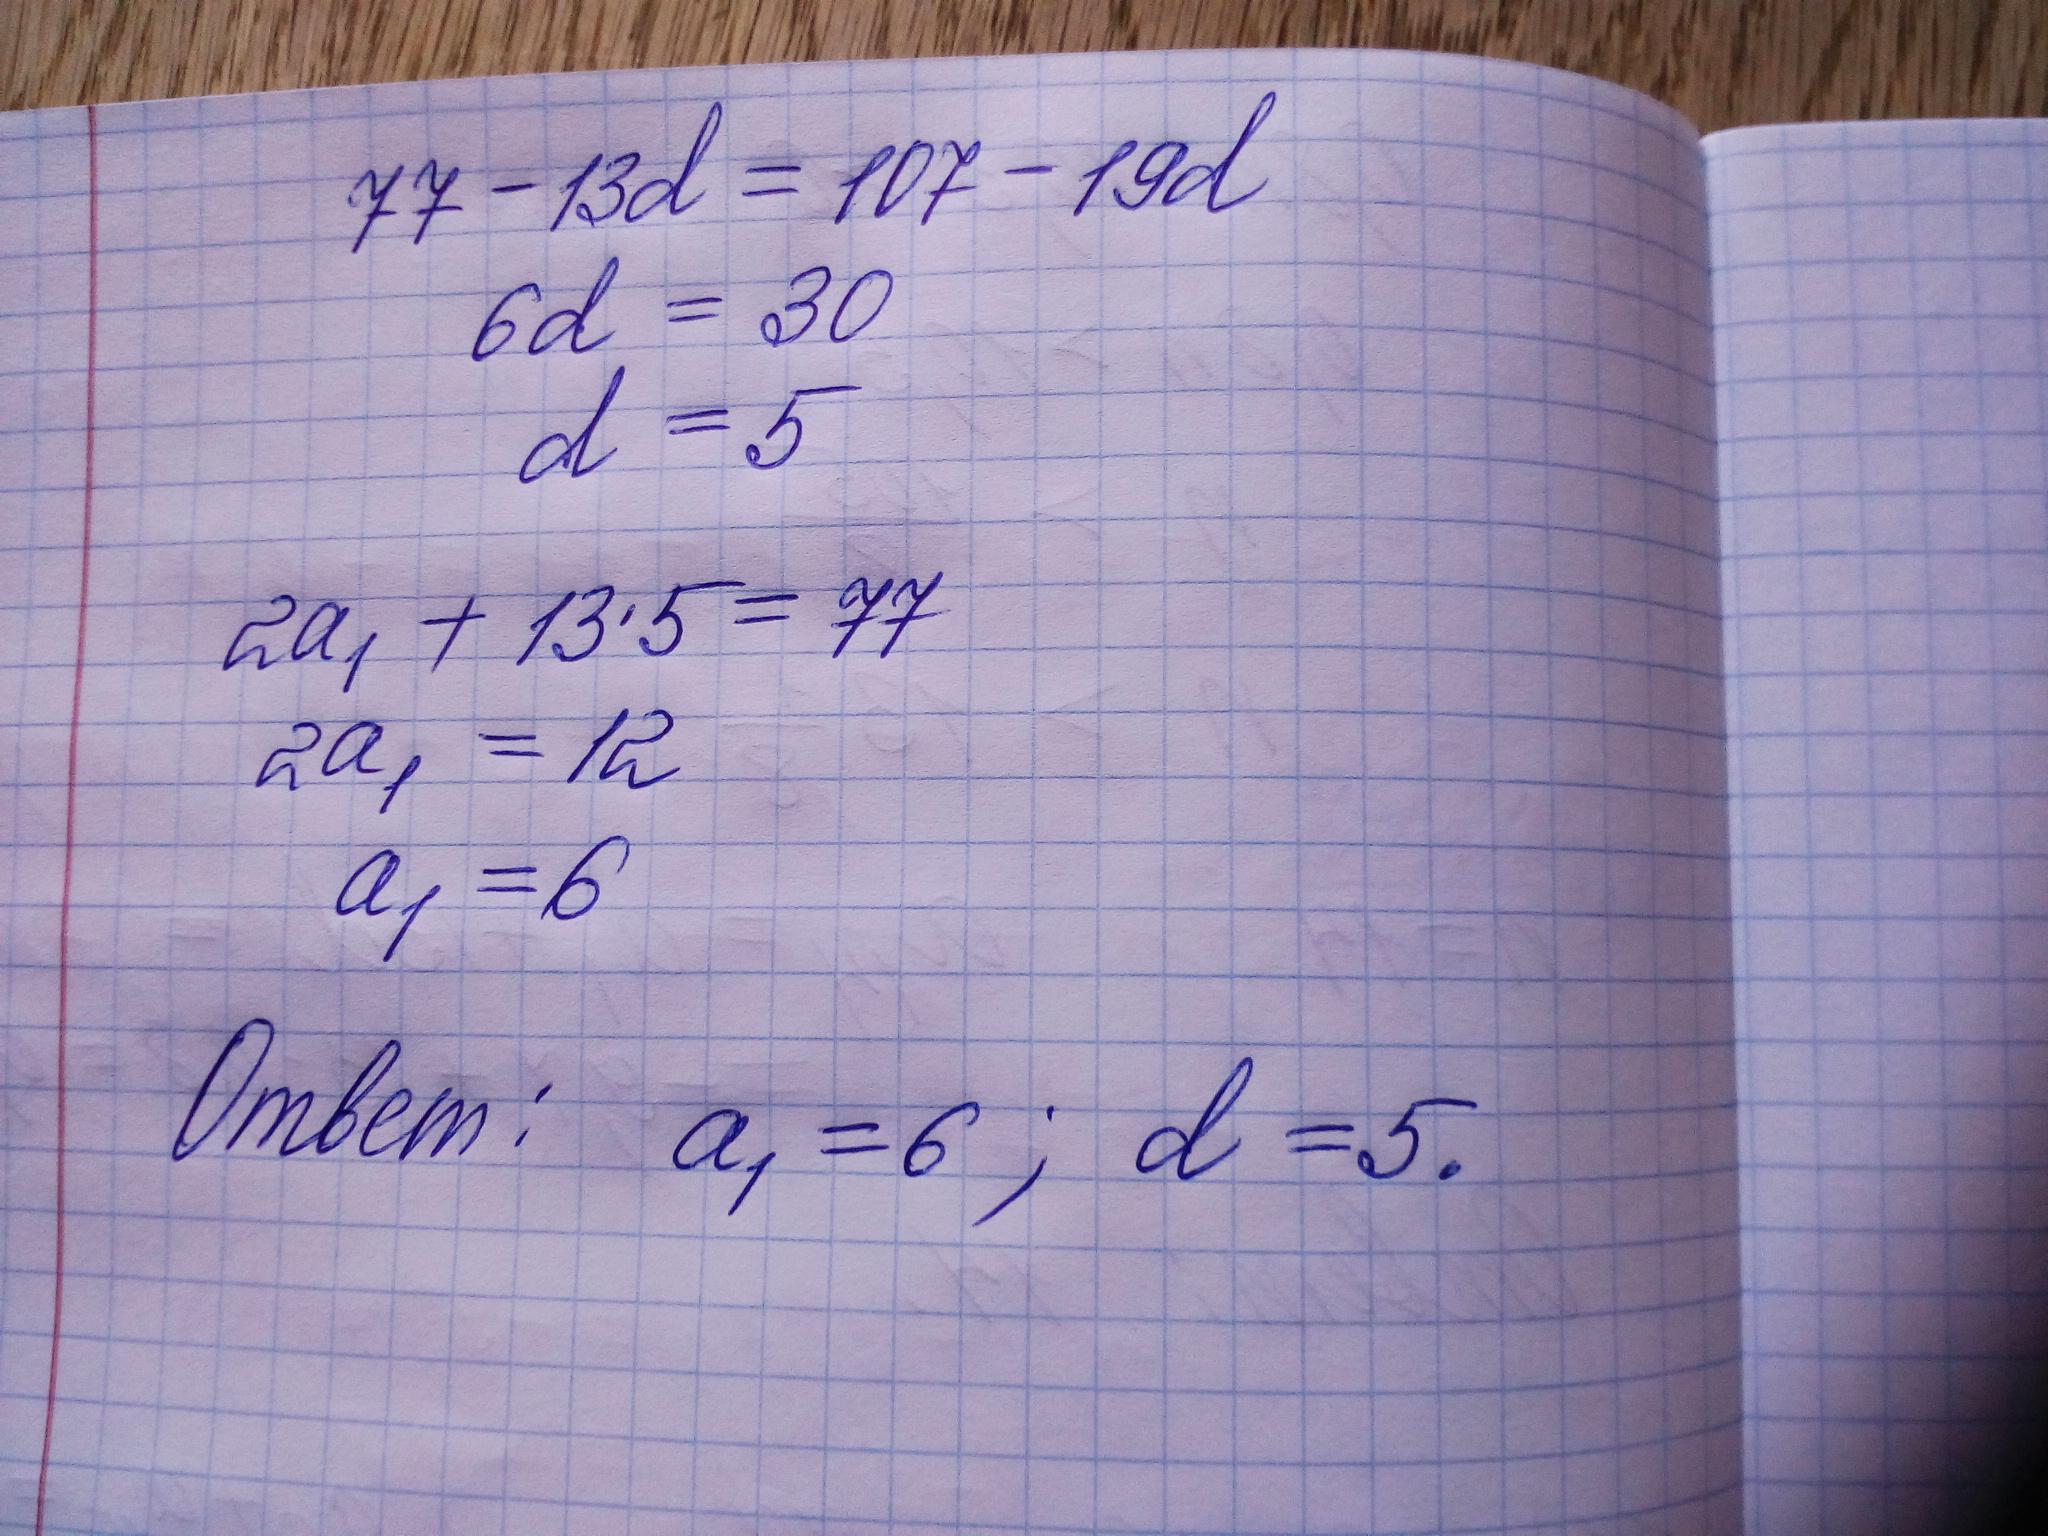 77 - 13d = 107 - 19d
6d = 30
d = 5
2a₁ + 13·5 = 77
2a₁ = 12
a₁ = 6
Ответ: a₁ = 6; d = 5.